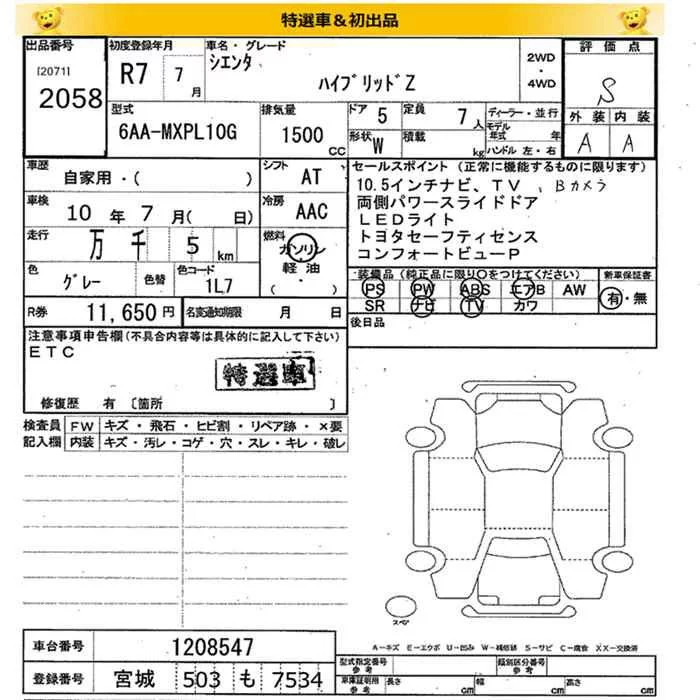 特選車＆初出品
出品番号 [2071] 2058
初度登録年月 R7 7月
車名・グレード シエンタ ハイブリッドZ
2WD・4WD
評価点 S
外装 内装 A A
型式 6AA-MXPL10G
排気量 1500 CC
ドア 5 定員 7人
形状 W 積載 kg
ディーラー・並行
モデル年式 年
ハンドル 左・右
車歴 自家用・( )
シフト AT
車検 10年7月(日)
冷房 AAC
走行 万千5km
燃料 ガソリン 軽油 ( ・ )
色 グレー 色替 色コード 1L7
R券 11,650円 名変通知期限 月 日
セールスポイント (正常に機能するものに限ります)
10.5インチナビ、TV、Bカメラ
両側パワースライドドア
LEDライト
トヨタセーフティセンス
コンフォートビューP
装備品(純正品に限り○をつけてください) 新車保証書
PS PW ABS エアB AW 有・無
SR ナビ TV カワ
後日品
注意事項申告欄(不具合内容等は具体的に記入して下さい)
ETC
特選車
修復歴 有 〔箇所 〕
検査員 FW キズ・飛石・ヒビ割・リペア跡・×要
記入欄 内装 キズ・汚レ・コゲ・穴・スレ・キレ・破レ
スペア
A-キズ E-エクボ U-凹み W-補修跡 S-サビ C-腐食 XX-交換済
車台番号 1208547
登録番号 宮城 503 も 7534
型式指定番号 参考 類別区分番号 参考
車庫証明用 参考 長さ cm 幅 cm 高さ cm